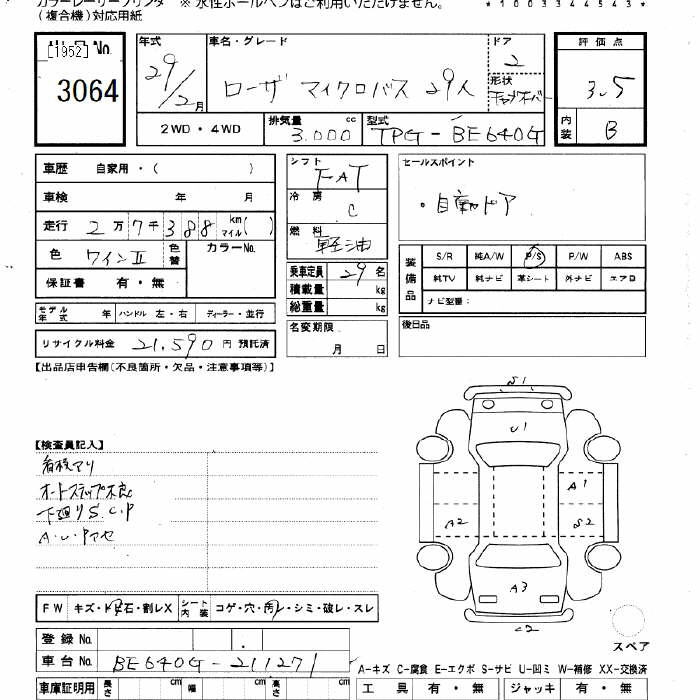 カラーレーザープリンタ ※水性ボールペンはご利用いただけません。
*1003344543*
(複合機)対応用紙
[1952] No.
3064
年式 29/2月
車名・グレード ローザ マイクロバス 29人
ドア 2
形状
評価点 3.5
内装 B
2WD・4WD
排気量 3.000 cc
型式 TPG-BE640G
車歴 自家用・( )
車検 年 月
走行 2万7千388 km マイル( )
色 ワインⅡ 色替 カラーNo.
保証書 有・無
モデル年式 年 ハンドル 左・右 ディーラー・並行
リサイクル料金 21.590 円 預託済
シフト FAT
冷房 C
燃料 軽油
乗車定員 29 名
積載量 kg
総重量 kg
名変期限
月 日
セールスポイント
・自動ドア
装備品 S/R 純A/W P/S P/W ABS
純TV 純ナビ 革シート 外ナビ エアロ
ナビ型番:
後日品
【出品店申告欄(不良箇所・欠品・注意事項等)】
【検査員記入】
看板アリ
オートステップ不良
下廻りS.C.P
A.U.Pアセ
S1
U1
A1
A2
S2
A3
C2
スペア
FW キズ・飛石・割レX シート内装 コゲ・穴・汚レ・シミ・破レ・スレ
登録No.
車台No. BE640G-211271
A-キズ C-腐食 E-エクボ S-サビ U-凹ミ W-補修 XX-交換済
車庫証明用 長さ cm 幅 cm 高さ cm
工具 有・無 ジャッキ 有・無